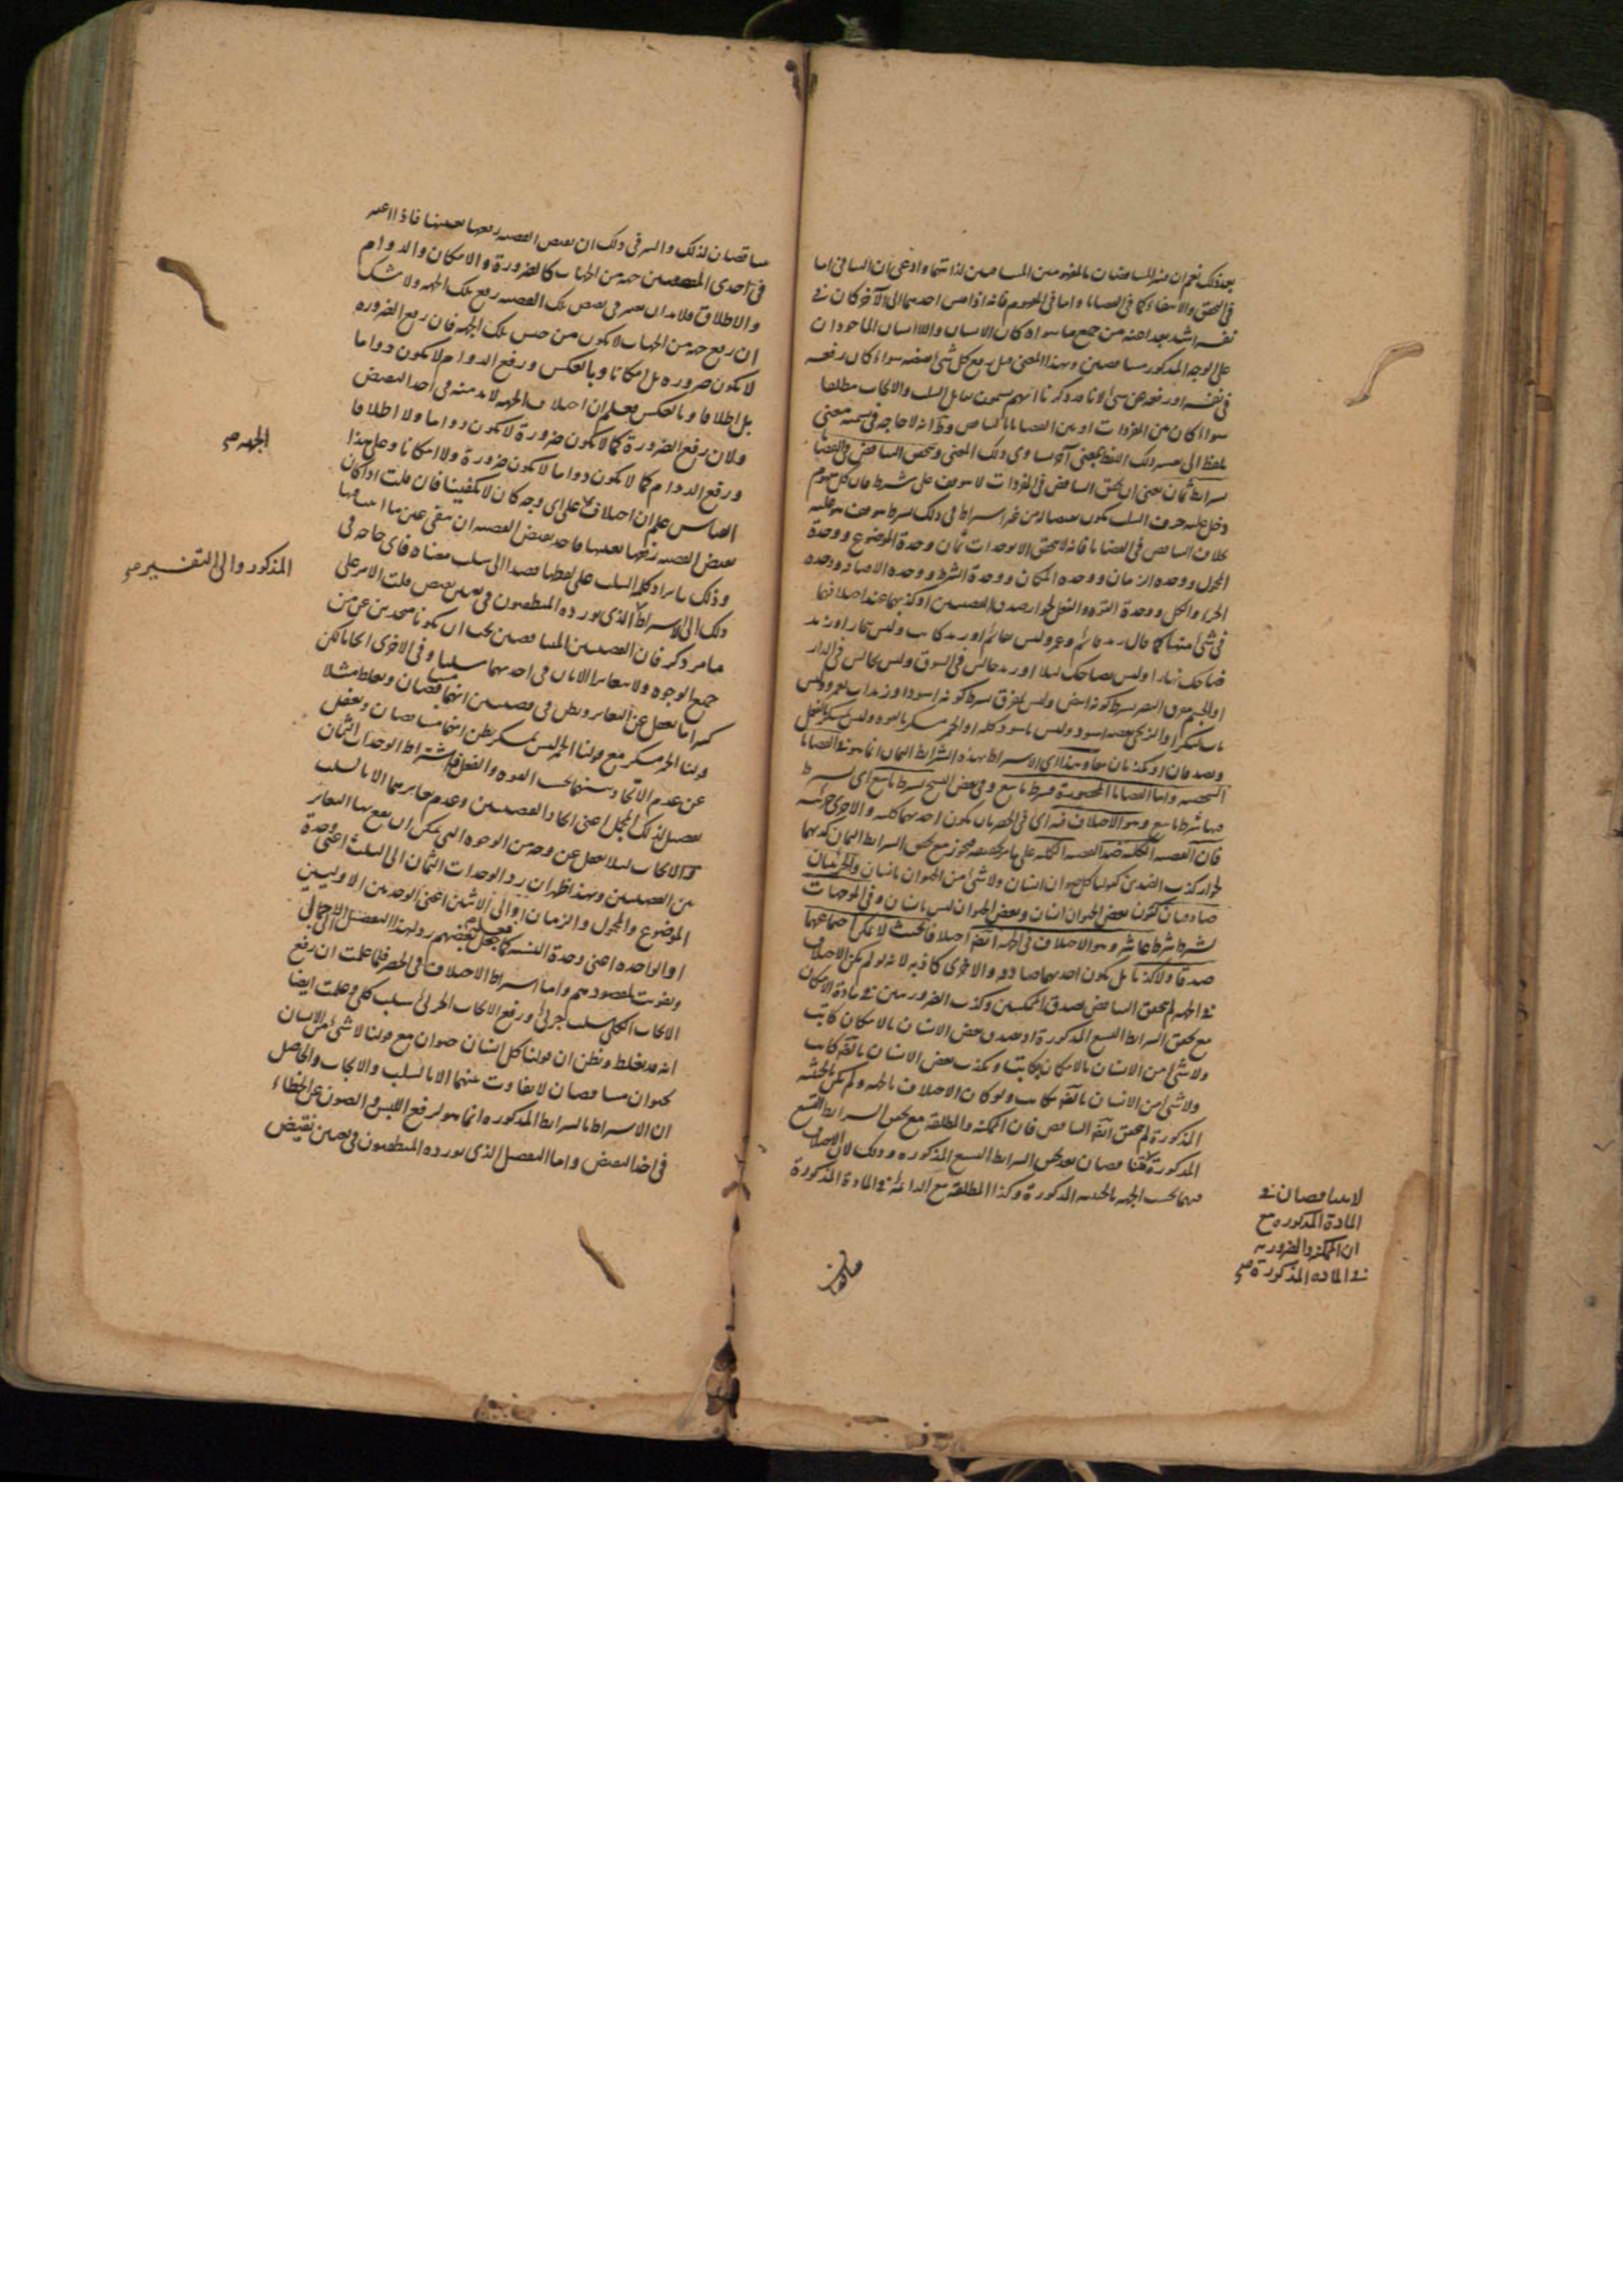 بعد ذلك نعم ان فسر المتناقضان بالمفهومين المتنافيين لذاتيهما وادعى ان التنافى اما
فى التحقق والانتفاء كما فى القضايا واما فى المفهوم فانه اذا قيس احدهما الى الآخر كان فى
نفسه اشد بعدا عنه من جميع ما سواه كان الانسان واللاانسان الماخوذان
على الوجه المذكور متناقضين وبهذا المعنى قيل رفع كل شئ نقيضه سواء كان رفعه
فى نفسه او رفعه عن شئ
سواء كان من المفردات او من القضايا
بلفظ الى تفسير ذلك اللفظ بمعنى آخر يساوى ذلك المعنى وتحقق التناقض فى القضايا
شرائط ثمان يعنى ان تحقق التناقض فى المفردات لا يتوقف على شرط فان كل مفهوم
دخل عليه حرف السلب يكون نقيضا له من غير اشتراط فى ذلك بشرط يتوقف هو عليه
بخلاف التناقض فى القضايا فانه لا يتحقق الا بوحدات ثمان وحدة الموضوع ووحدة
المحمول ووحدة الزمان ووحدة المكان ووحدة الشرط ووحدة الاضافة ووحدة
الجزء والكل ووحدة القوة والفعل لجواز صدق القضيتين او كذبهما عند اختلافهما
فى شئ منها كما يقال زيد قائم وعمرو ليس بقائم او زيد كاتب وليس بنجار او زيد
ضاحك نهارا وليس بضاحك ليلا او زيد جالس فى السوق وليس بجالس فى الدار
او الجسم مفرق للبصر بشرط كونه ابيض وليس بمفرق بشرط كونه اسود او زيد اب لعمرو وليس
باب لبكر او الزنجى بعضه اسود وليس باسود كله او الخمر مسكر بالقوة وليس بمسكر بالفعل
وتصدقان او تكذبان معا وهذا اى الاشتراط بهذه الشرائط الثمان انما هو فى القضايا
الشخصية واما القضايا المحصورة فبشرط تاسع وفى بعض النسخ بشرط تاسع اى يشترط
فيها شرط تاسع وهو الاختلاف فيه اى فى الحصر بان يكون احديهما كلية والاخرى جزئية
فان القضية الكلية ضد القضية الكلية على ما مر تحقيقه فيجوز مع تحقق الشرائط الثمان كذبهما
لجواز كذب الضدين كقولنا كل حيوان انسان ولا شئ من الحيوان بانسان والجزئيتان
صادقتان كقولنا بعض الحيوان انسان وبعض الحيوان ليس بانسان وفى الموجهات
بشرط شرط عاشر وهو الاختلاف فى الجهة ايضا اختلافا بحيث لا يمكن اجتماعهما
صدقا ولا كذبا بل يكون احديهما صادقة والاخرى كاذبة لانه لو لم يكن الاختلاف
فى الجهة لم يتحقق التناقض لصدق الممكنتين وكذب الضروريتين فى مادة الامكان
مع تحقق الشرائط التسع المذكورة اذ يصدق بعض الانسان بالامكان كاتب
ولا شئ من الانسان بالامكان بكاتب ويكذب بعض الانسان بالضرورة كاتب
ولا شئ من الانسان بالضرورة بكاتب ولو كان الاختلاف بالجهة ولم يكن بالحيثية
المذكورة لم يتحقق ايضا التناقض فان الممكنة والمطلقة مع تحقق الشرائط التسع
المذكورة
فيهما بحسب الجهة بالحيثية المذكورة وكذا المطلقة مع الدائمة فى المادة المذكورة
لا يتناقضان فى
المادة المذكورة مع
ان الممكنة والضرورية
فى المادة المذكورة صح
متناقضان لذلك والسر فى ذلك ان نقيض القضية رفعها بعينها فاذا اعتبر
فى احدى القضيتين جهة من الجهات كالضرورة والامكان والدوام
والاطلاق فلا بد ان يعتبر فى نقيض تلك القضية رفع تلك الجهة ولا شك
ان رفع جهة من الجهات لا يكون من جنس تلك الجهة فان رفع الضرورة
لا يكون ضرورة بل امكانا وبالعكس ورفع الدوام لا يكون دواما
بل اطلاقا وبالعكس فعلم ان اختلاف الجهة لا بد منه فى اخذ النقيض
ولان رفع الضرورة كما لا يكون ضرورة لا يكون دواما ولا اطلاقا
ورفع الدوام كما لا يكون دواما لا يكون ضرورة ولا امكانا وعلى هذا
القياس علم ان اختلاف على اى وجه كان لا يكفينا فان قلت اذا كان
نقيض القضية رفعها بعينها
الجهة صح
وذلك بايراد كلمة السلب على لفظها قصدا الى سلب معناه فاى حاجة فى
ذلك الى الاشتراط الذى يورده المنطقيون فى تعيين نقيض قلت الامر على
المذكور والى التفسير صح
ما مر ذكره فان القضيتين المتناقضتين يجب ان يكونا متحدتين من
جميع الوجوه ولا يتغايرا الا بان فى احديهما سلبا وفى الاخرى ايجابا لكن
كثيرا ما يغفل عن التغاير ويظن فى قضيتين انهما متناقضتان ويغلط مثلا
قولنا الخمر مسكر مع قولنا الخمر ليس بمسكر يظن انهما متناقضتان ويغفل
عن عدم الاتحاد بينهما بحسب القوة والفعل فاشتراط الوحدات الثمان
تفصيل لذلك المجمل اعنى اتحاد القضيتين وعدم تغايرهما الا بالسلب
والايجاب لئلا يغفل عن وجه من الوجوه التى يمكن ان يقع بها التغاير
بين القضيتين وبهذا ظهر ان رد الوحدات الثمان الى الثلث اعنى وحدة
الموضوع والمحمول والزمان او الى الاثنين اعنى الوحدتين الاوليين
او الواحدة اعنى وحدة النسبة كما فعله بعضهم رد لهذا التفصيل الى الاجمالى
وتفويت لمقصودهم واما اشتراط الاختلاف فى الحصر فلما علمت ان رفع
الايجاب الكلى سلب جزئى ورفع الايجاب الجزئى سلب كلى وعلمت ايضا
انه قد يغلط ويظن ان قولنا كل انسان حيوان مع قولنا لا شئ من الانسان
بحيوان متناقضان لا تفاوت بينهما الا بالسلب والايجاب والحاصل
ان الاشتراط بالشرائط المذكورة انما هو لرفع اللبس والصون عن الخطاء
فى اخذ النقيض واما التفصيل الذى يورده المنطقيون فى تعيين نقيض